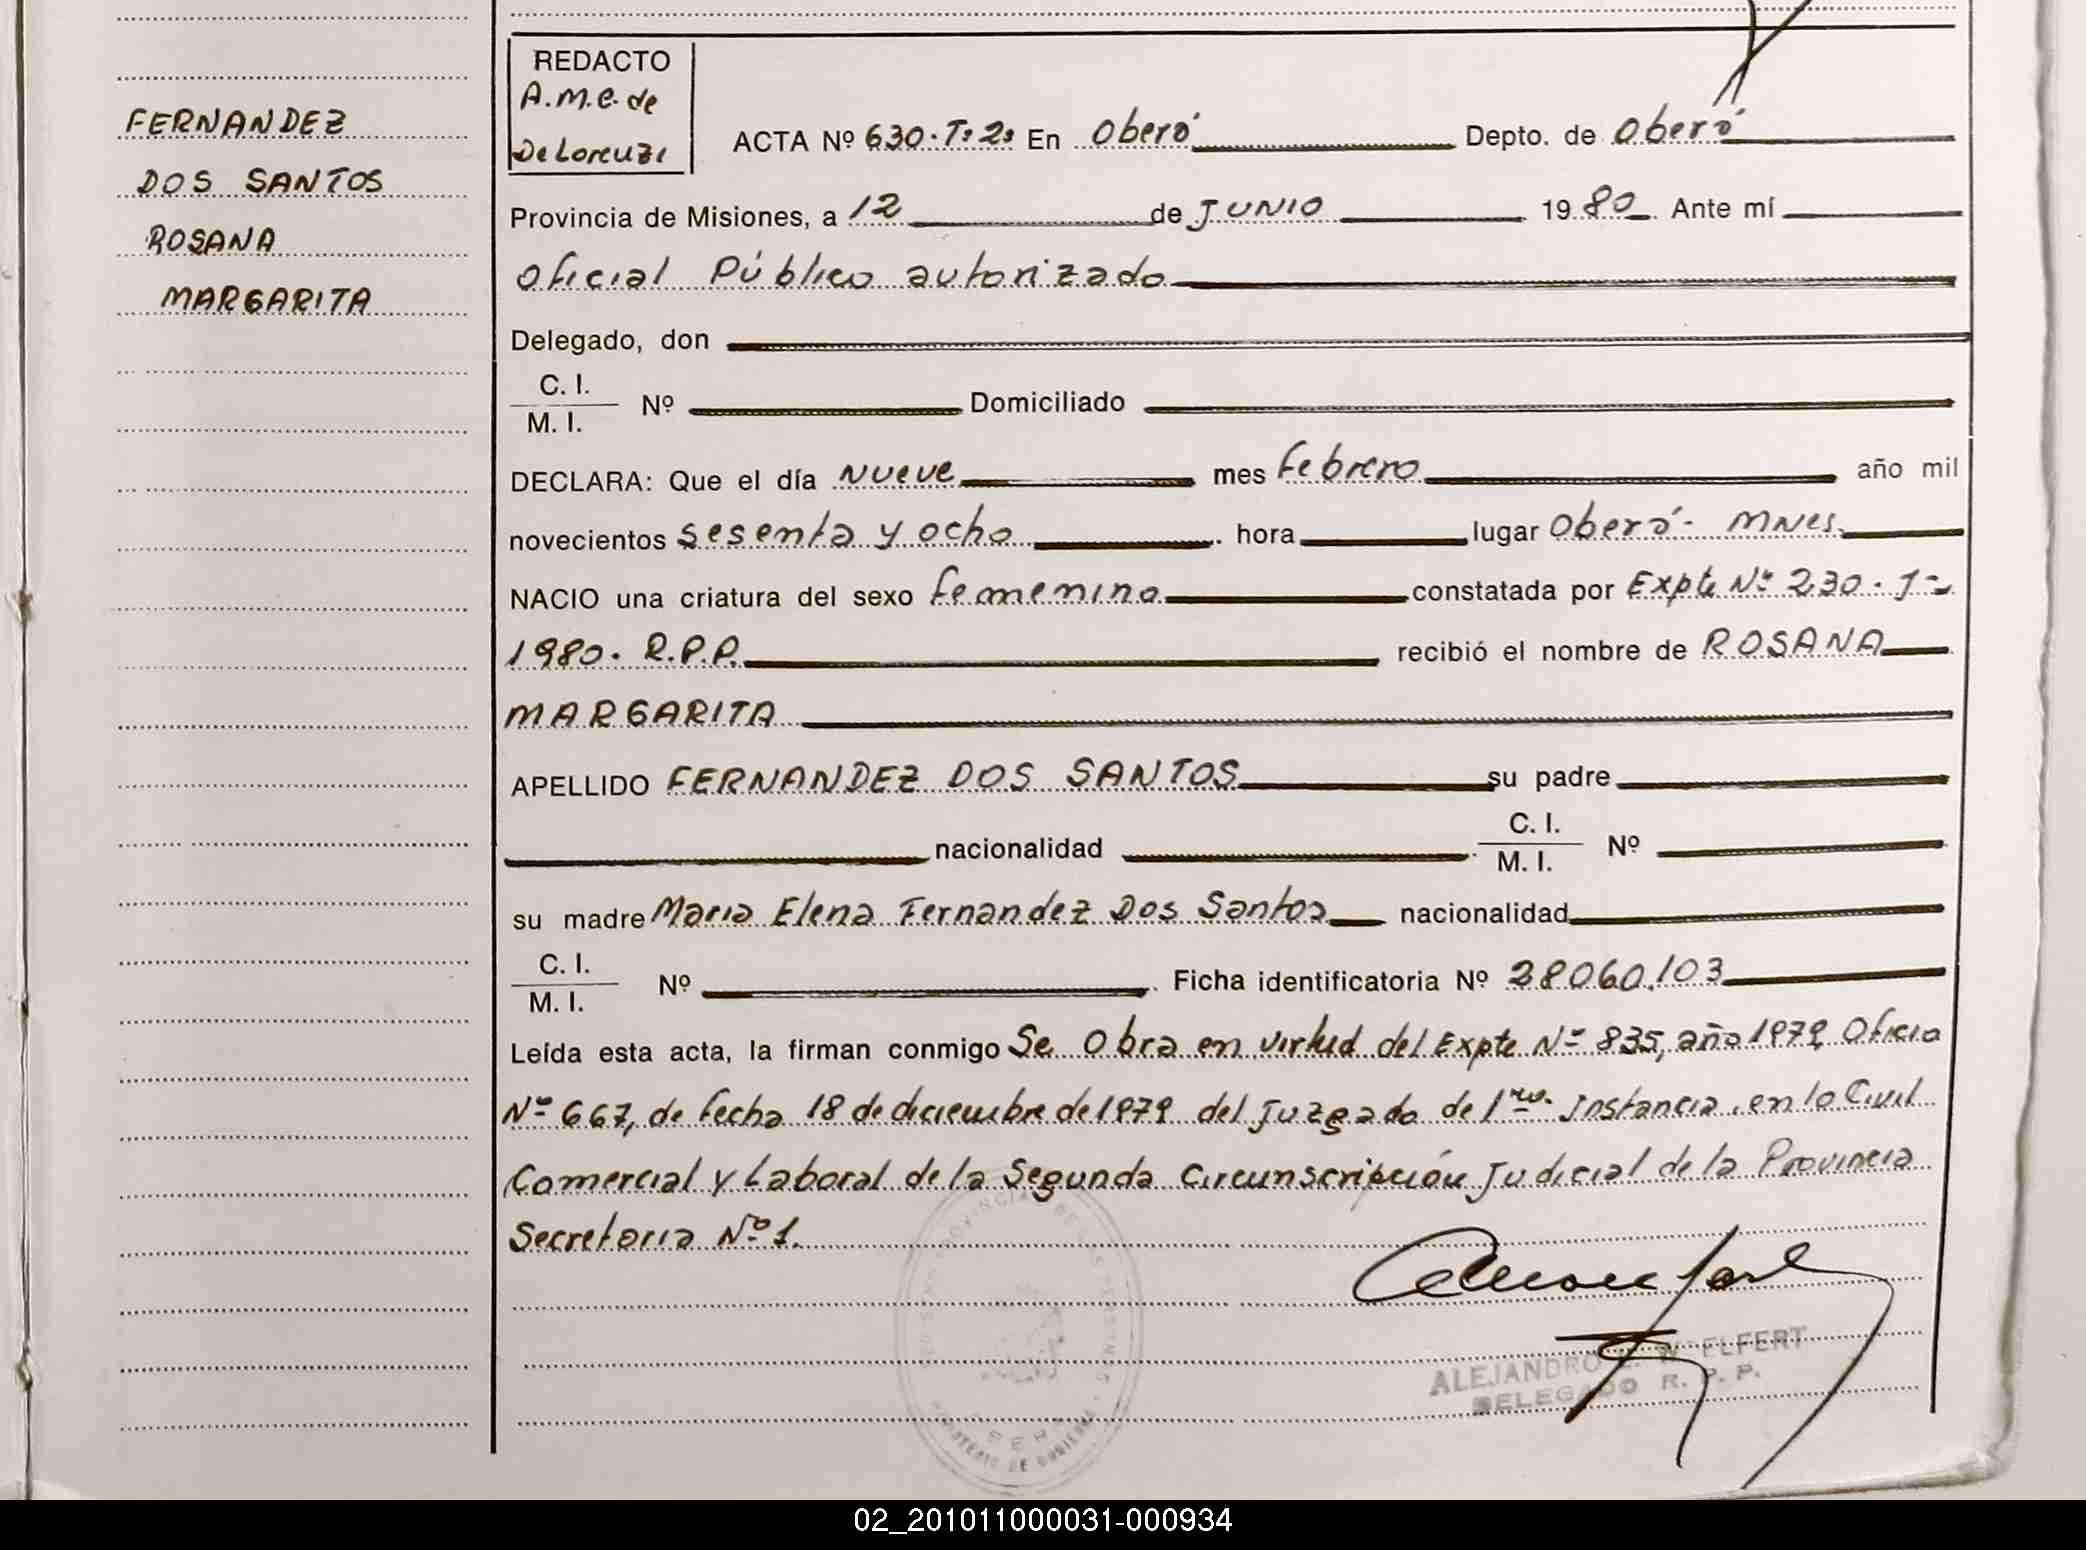 FERNANDEZ
DOS SANTOS
ROSANA
MARGARITA
REDACTO
A.M.C. de
De Lorenzi
ACTA Nº 630. Tº 2º En Oberá Depto. de Oberá
Provincia de Misiones, a 12 de JUNIO 1980. Ante mí
Oficial Público autorizado
Delegado, don
C. I.
M. I. Nº Domiciliado
DECLARA: Que el día nueve mes febrero año mil
novecientos sesenta y ocho. hora lugar Oberá - Mnes.
NACIO una criatura del sexo femenino constatada por Expte Nº 230.
1980. R.P.P. recibió el nombre de ROSANA
MARGARITA
APELLIDO FERNANDEZ DOS SANTOS su padre
nacionalidad C. I.
M. I. Nº
su madre Maria Elena Fernandez Dos Santos nacionalidad
C. I.
M. I. Nº Ficha identificatoria Nº 28060.103
Leída esta acta, la firman conmigo Se Obra en virtud del Expte Nº 835, año 1979, Oficio
Nº 667, de fecha 18 de diciembre de 1979 del Juzgado de 1ra. Instancia, en lo Civil
Comercial y Laboral de la Segunda Circunscripción Judicial de la Provincia
Secretaria Nº 1.
ALEJANDRO ELFERT
DELEGADO R. P. P.
MINISTERIO DE GOBIERNO
02_201011000031-000934